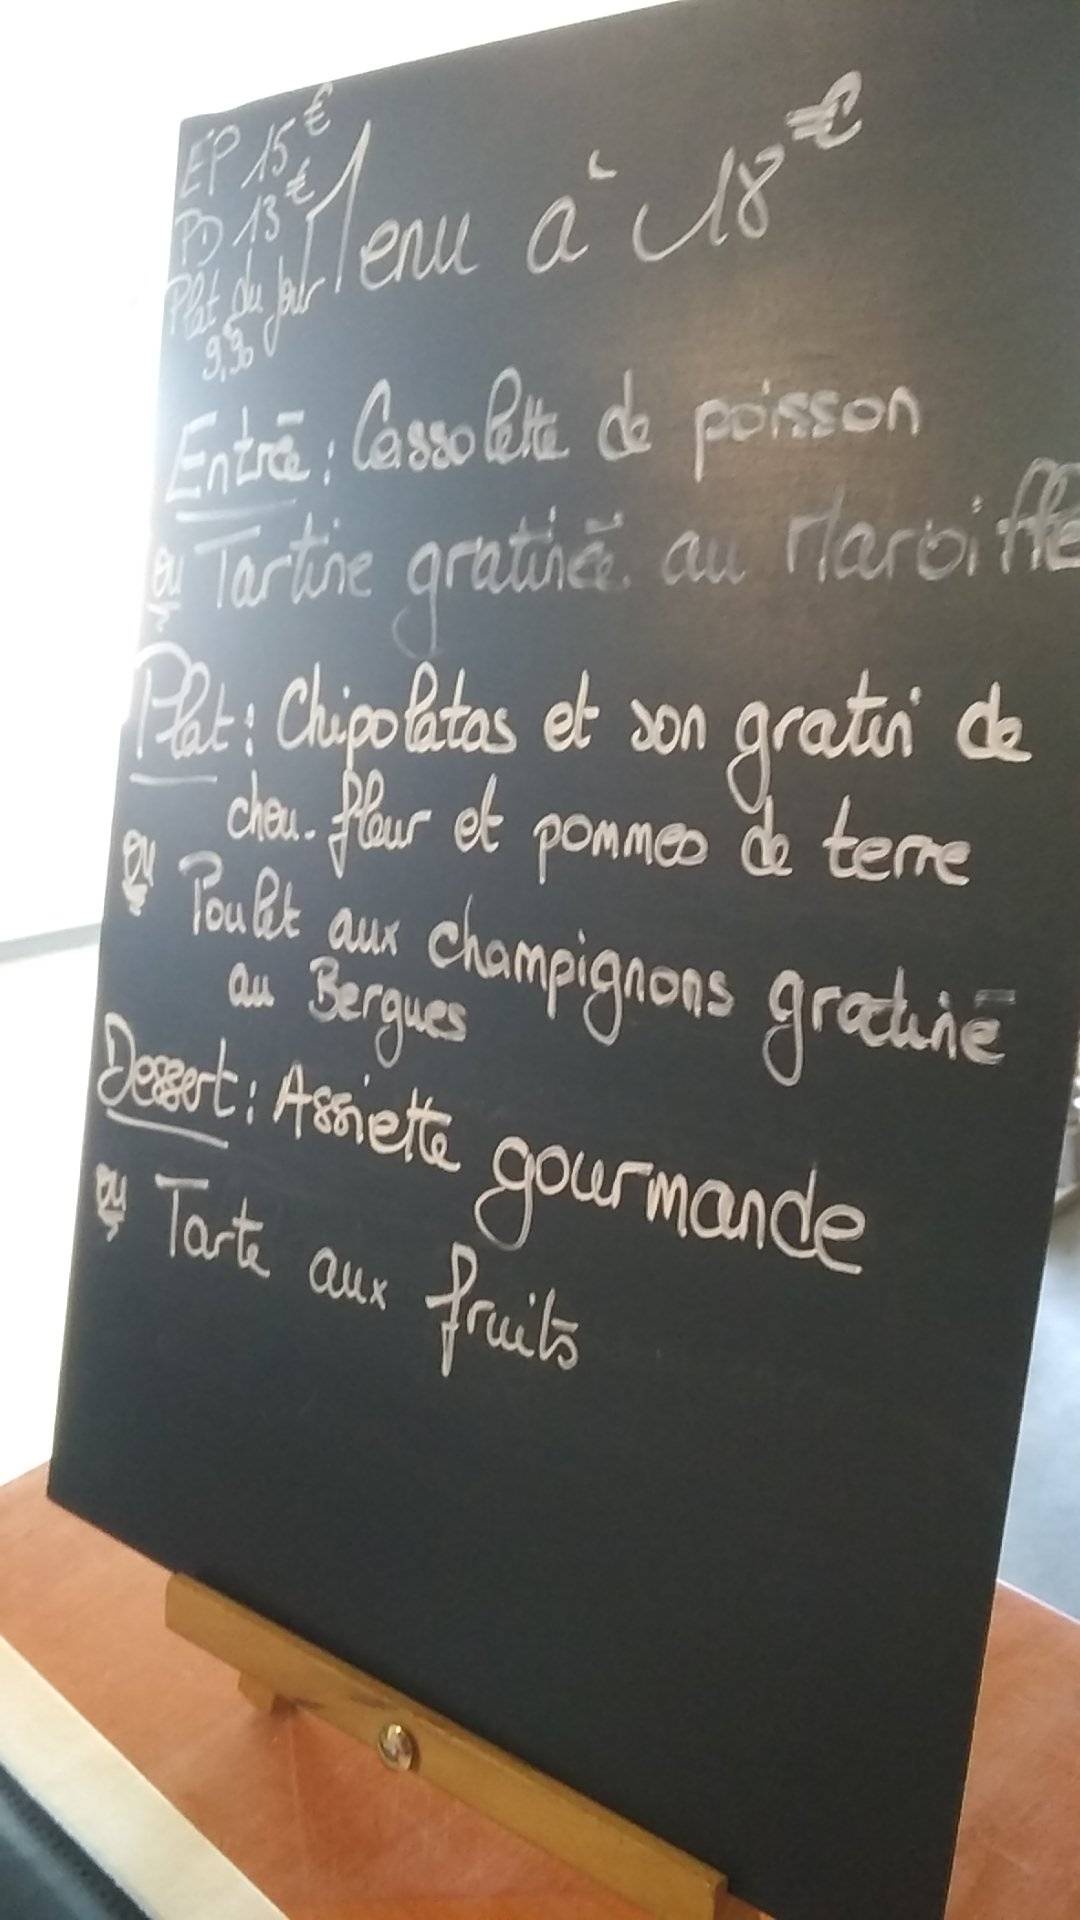 EP 15€
PD 13€
Plat du jour
9,90
Menu à 18€
Entrée : Cassolette de poisson
ou Tartine gratinée au Maroiffle
Plat : Chipolatas et son gratin de
chou-fleur et pommes de terre
ou Poulet aux champignons gratiné
au Bergues
Dessert : Assiette gourmande
ou Tarte aux fruits